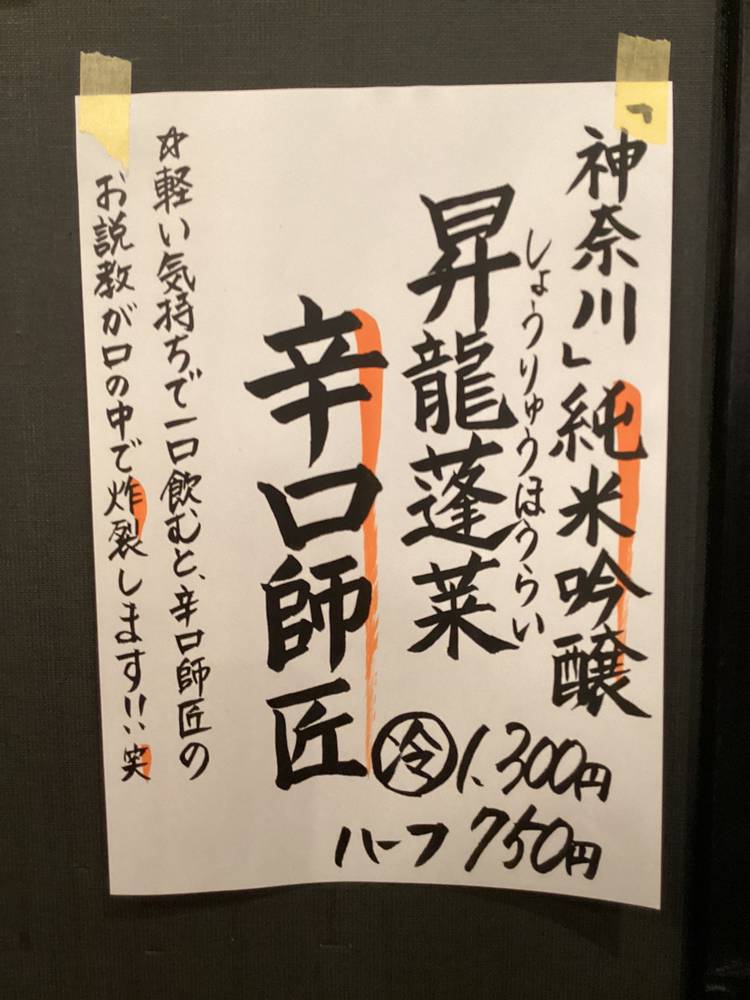 「神奈川」純米吟醸
しょうりゅうほうらい
昇龍蓬莱
辛口師匠
㊗冷 1,300円
ハーフ 750円
☆軽い気持ちで一口飲むと、辛口師匠の
お説教が口の中で炸裂します!!、笑